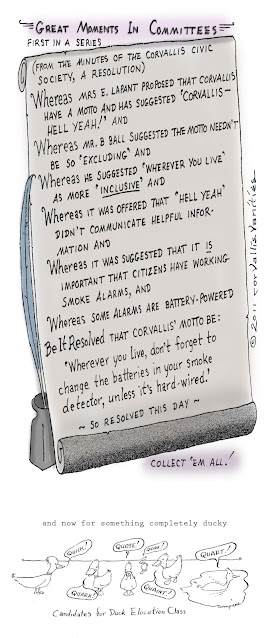 Great Moments In Committees
FIRST IN A SERIES
(FROM THE MINUTES OF THE CORVALLIS CIVIC
SOCIETY, A RESOLUTION)
Whereas MRS E. LAPANT PROPOSED THAT CORVALLIS
HAVE A MOTTO AND HAS SUGGESTED "CORVALLIS—
HELL YEAH!" AND
Whereas MR. B BALL SUGGESTED THE MOTTO NEEDN'T
BE SO "EXCLUDING" AND
Whereas HE SUGGESTED "WHEREVER YOU LIVE"
AS MORE "INCLUSIVE" AND
Whereas IT WAS OFFERED THAT "HELL YEAH"
DIDN'T COMMUNICATE HELPFUL INFOR-
MATION AND
Whereas IT WAS SUGGESTED THAT IT IS
IMPORTANT THAT CITIZENS HAVE WORKING
SMOKE ALARMS, AND
Whereas SOME ALARMS ARE BATTERY-POWERED
Be It Resolved THAT CORVALLIS' MOTTO BE:
"Wherever you live, don't forget to
change the batteries in your smoke
detector, unless it's hard-wired."
~ SO RESOLVED THIS DAY ~
© 2011 Corvallis Vanities
COLLECT 'EM ALL!
and now for something completely ducky
QUICK!
QUOTE!
QUIRK!
QUART!
QUARK!
QUAINT!
Candidates for Duck Elocution Class